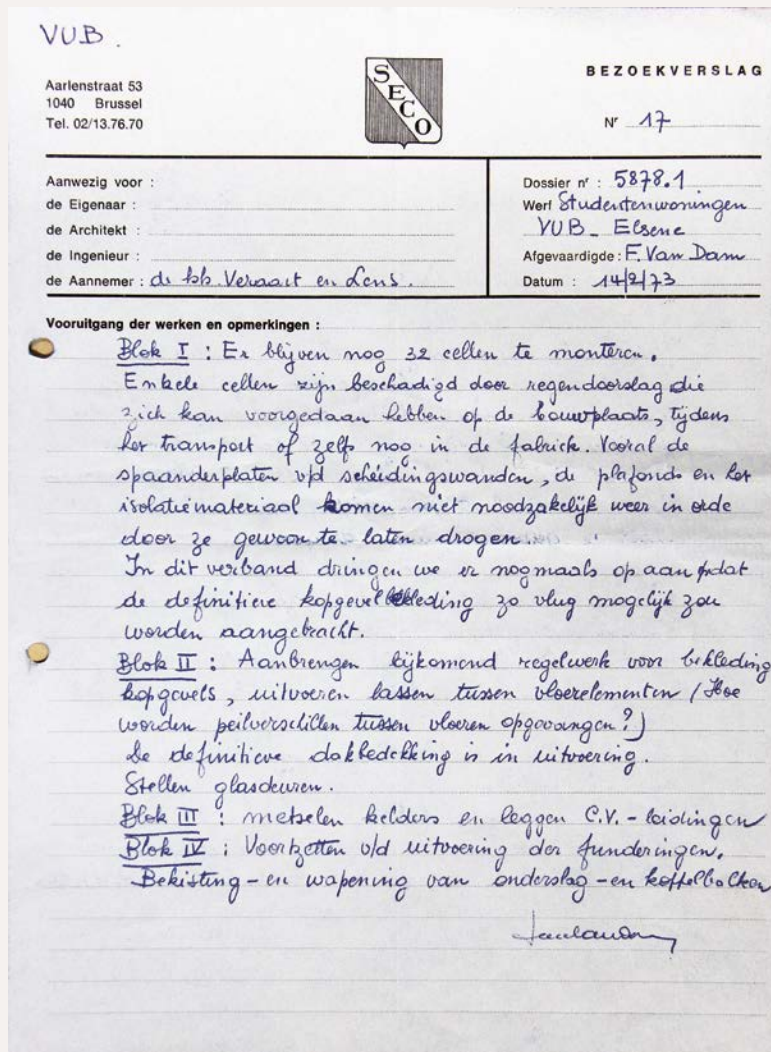 VUB.
Aarlenstraat 53
1040 Brussel
Tel. 02/13.76.70
SECO
BEZOEKVERSLAG
Nr 17
Aanwezig voor :
de Eigenaar :
de Architekt :
de Ingenieur :
de Aannemer : de hh. Veraart en Lens.
Dossier nr : 5878.1
Werf Studentenwoningen
VUB - Elsene
Afgevaardigde : F. Van Dam
Datum : 14/2/73
Vooruitgang der werken en opmerkingen :
Blok I : Er blijven nog 32 cellen te monteren.
Enkele cellen zijn beschadigd door regendoorslag die
zich kan voorgedaan hebben op de bouwplaats, tijdens
het transport of zelfs nog in de fabriek. Vooral de
spaanderplaten v/d scheidingswanden, de plafonds en het
isolatiemateriaal komen niet noodzakelijk weer in orde
door ze gewoon te laten drogen.
In dit verband dringen we er nogmaals op aan opdat
de definitieve kopgevelbekleding zo vlug mogelijk zou
worden aangebracht.
Blok II : Aanbrengen bijkomend regelwerk voor bekleding
kopgevels, uitvoeren lassen tussen vloerelementen (Hoe
worden peilverschillen tussen vloeren opgevangen?)
De definitieve dakbedekking is in uitvoering.
Stellen glasdeuren.
Blok III : metselen kelders en leggen C.V.-leidingen
Blok IV : Voortzetten v/d uitvoering der funderingen.
Bekisting - en wapening van onderslag - en koppelbalken